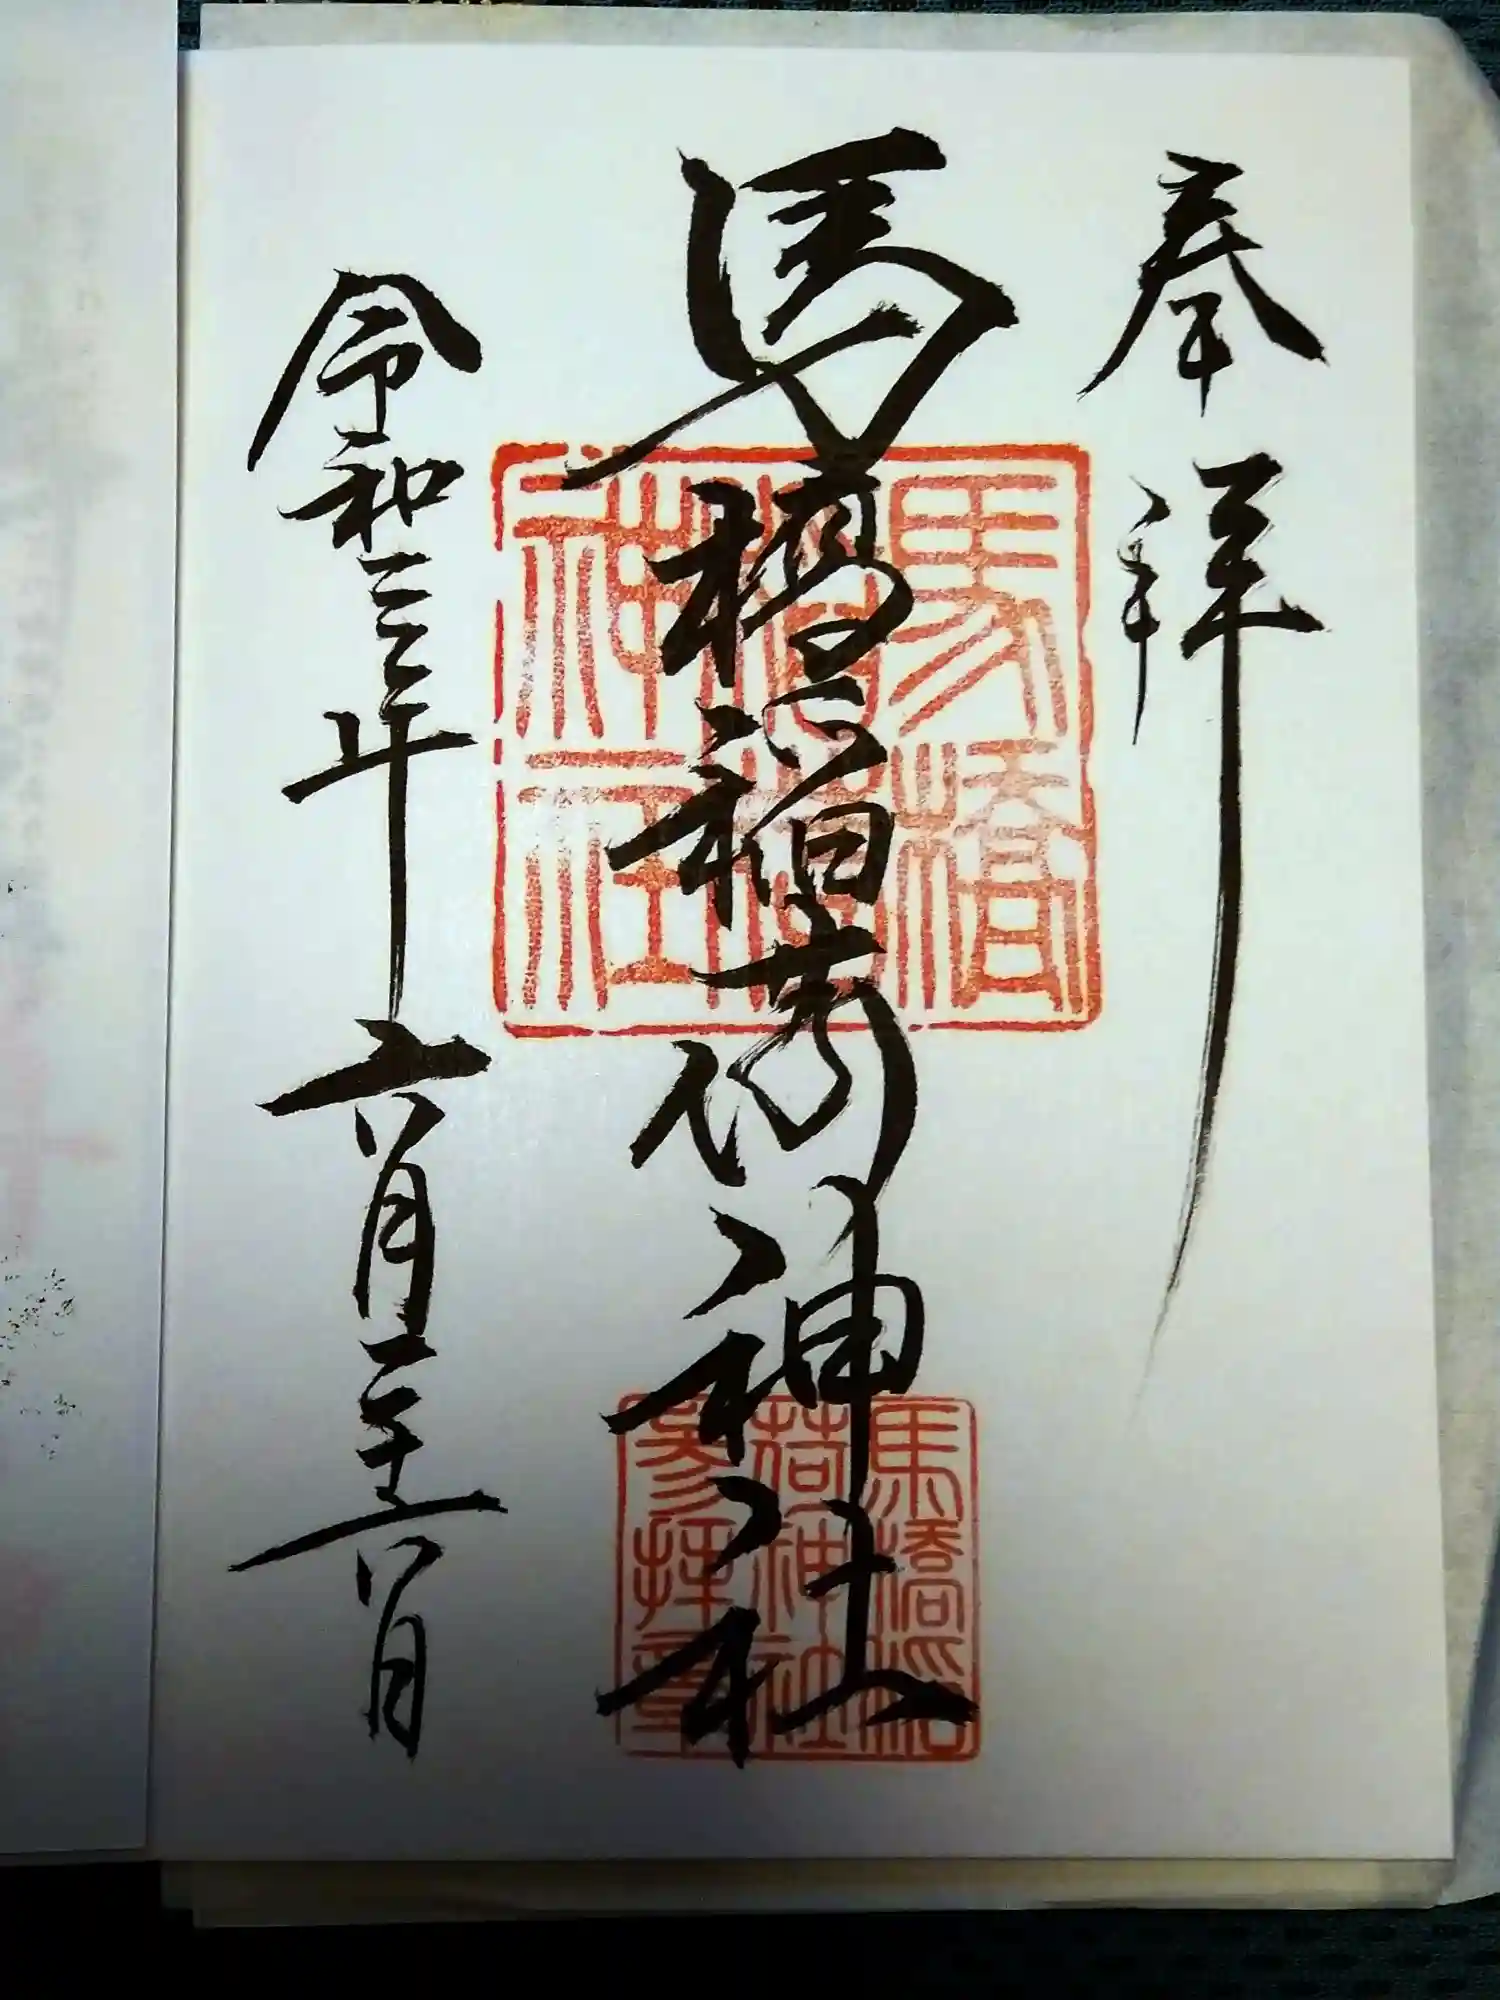 奉拝
馬橋稲荷神社
令和三年六月二十六日
馬橋
稲荷
神社
馬橋稲
荷神社
参拝章